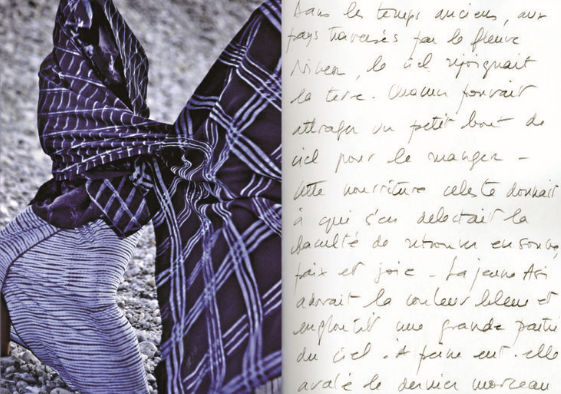 Dans les temps anciens, aux
pays traversés par le fleuve
Niven, le ciel rejoignait
la terre. Chacun pouvait
attraper un petit bout de
ciel pour le manger -
Cette nourriture céleste donnait
à qui s'en délectait la
faculté de retrouver en songe,
paix et joie - La jeune Asi
adorait la couleur bleue et
engloutit une grande partie
du ciel. A peine eut-elle
avalé le dernier morceau